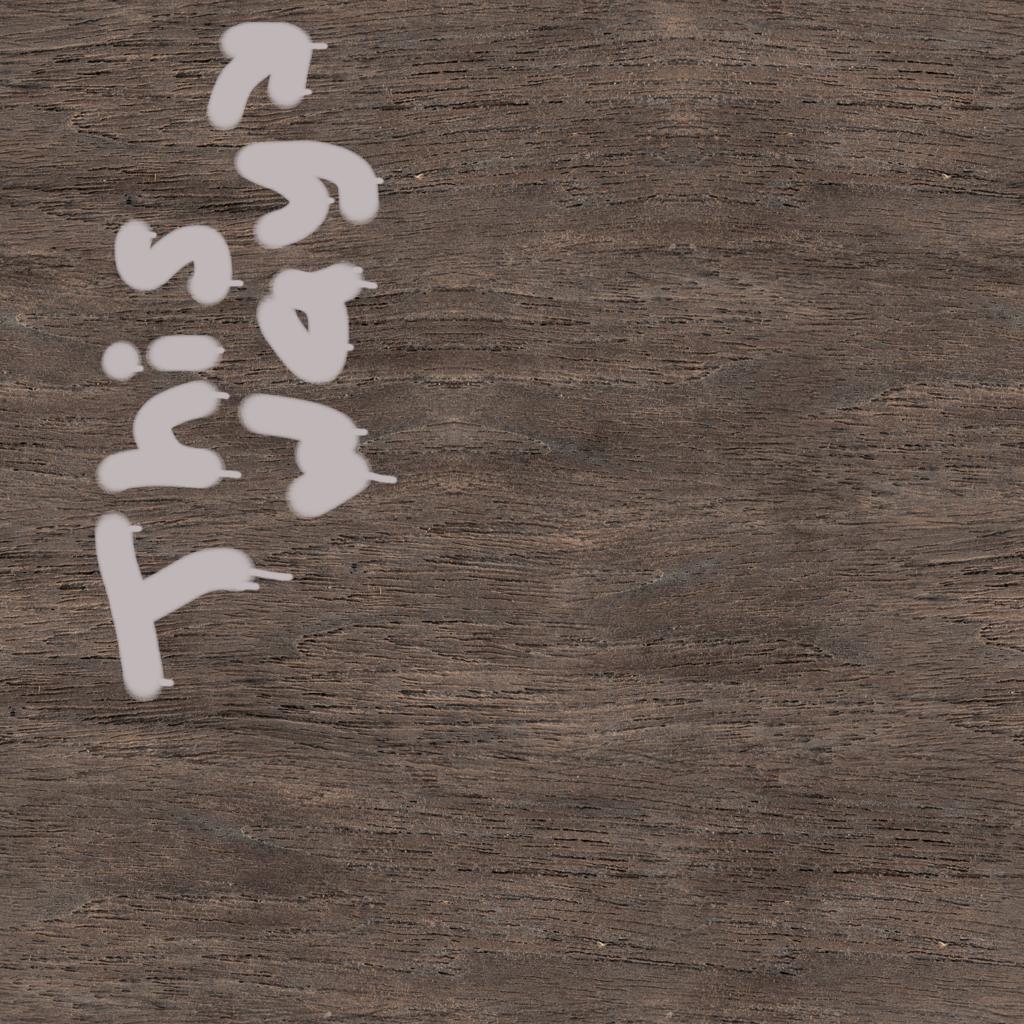 This
way ↘